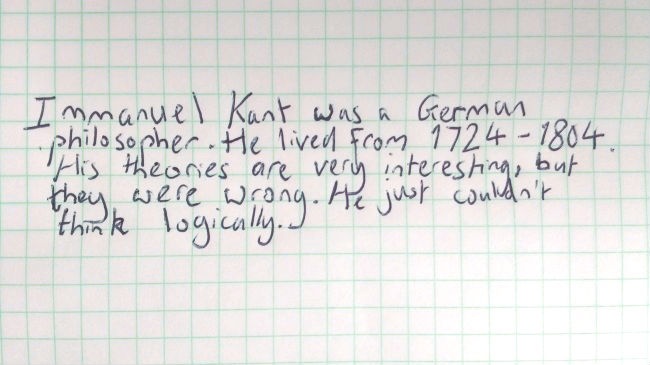 Immanuel Kant was a German
philosopher. He lived from 1724-1804.
His theories are very interesting, but
they were wrong. He just couldn't
think logically.